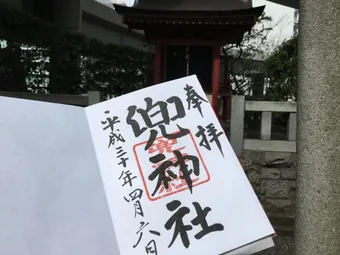 奉拝
兜神社
平成三十年四月六日